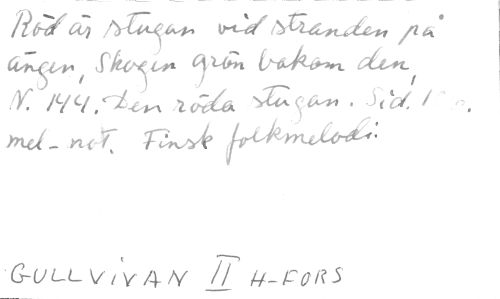 Röd är stugan vid stranden på
ängen, Skogen grön bakom den,
N. 144. Den röda stugan. Sid.
mel-not. Finsk folkmelodi.
GULLVIVAN II H-FORS